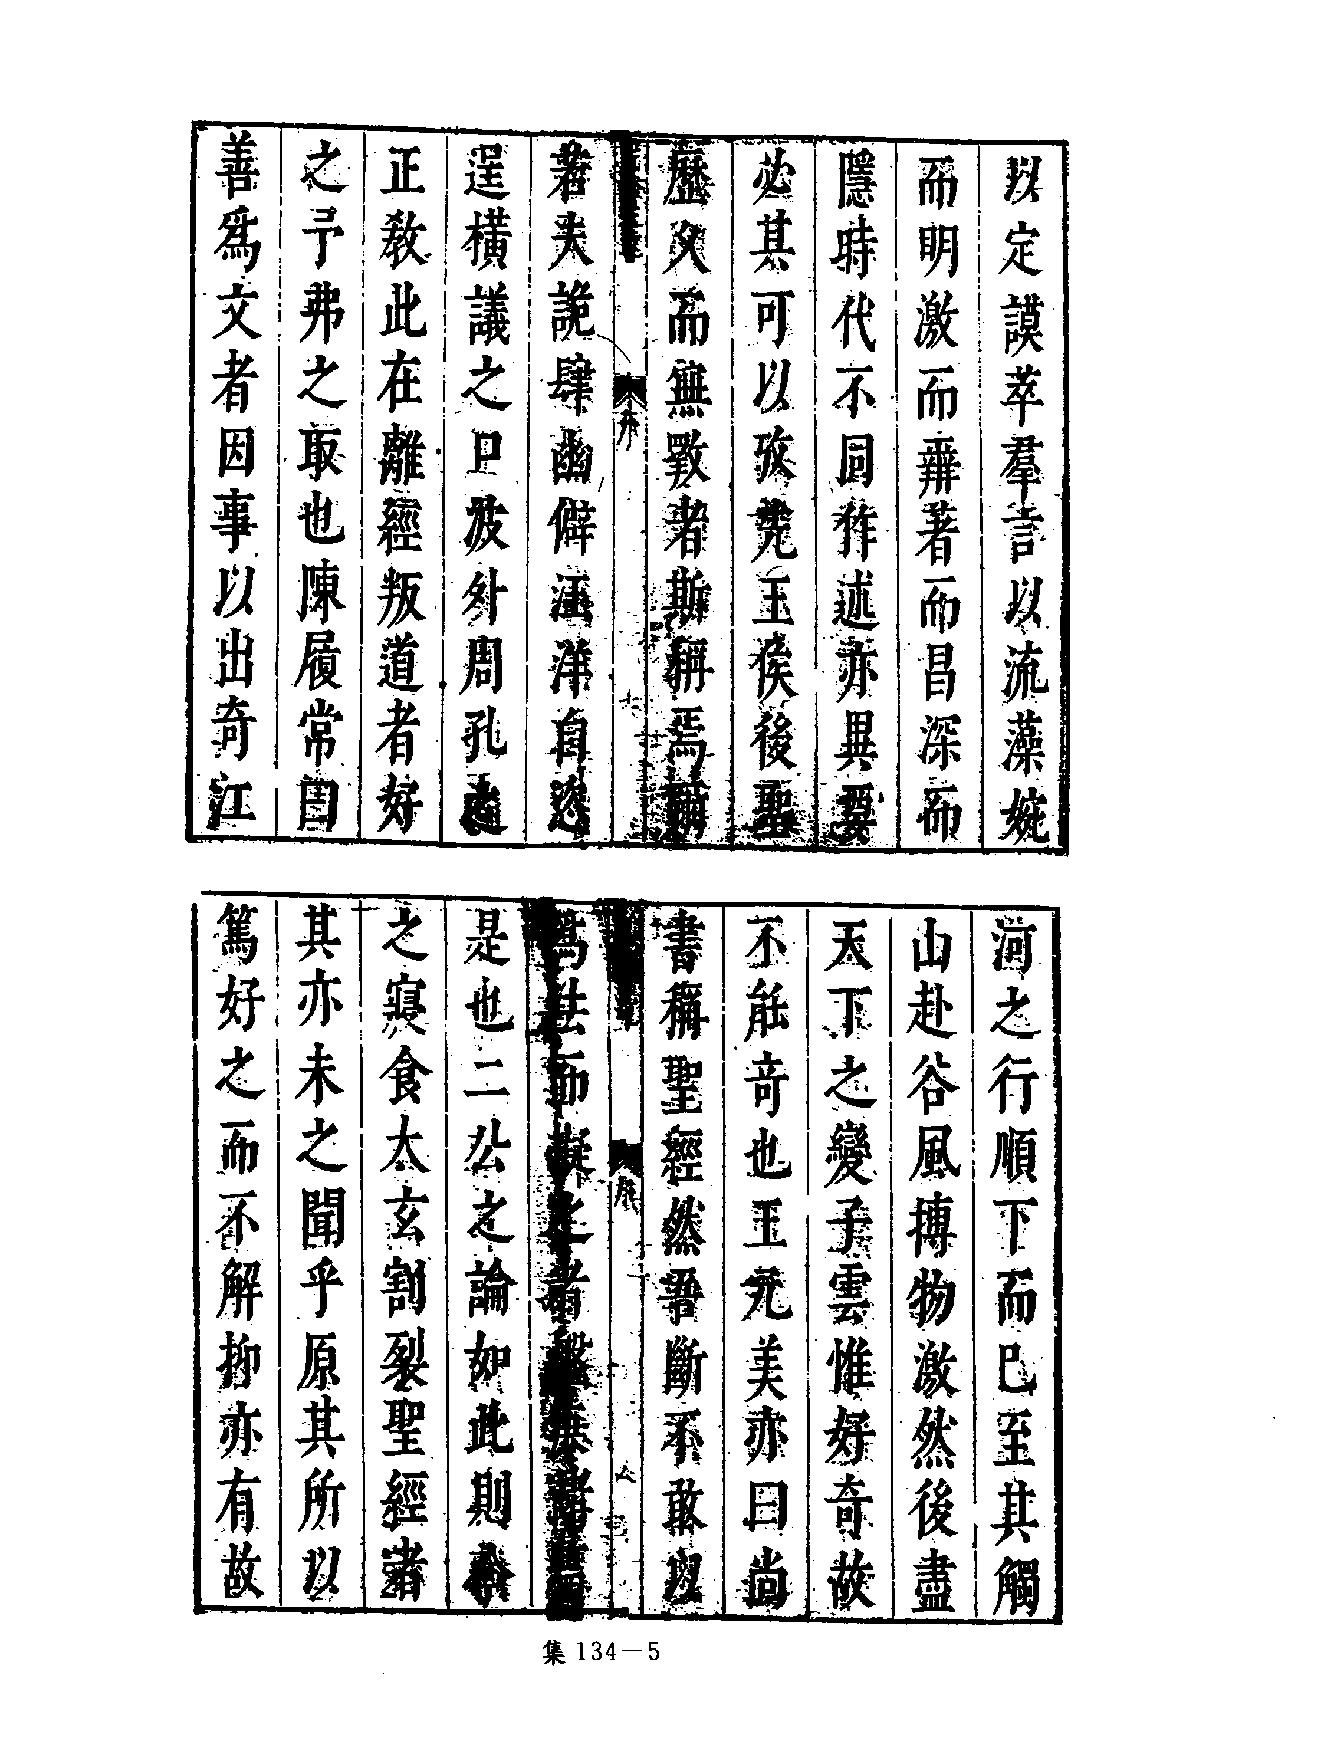 以定謨萃羣言以流藻婉
而明激而辨著而昌深而
隱時代不同作述亦異要
必其可以攷先王俟後聖
歷久而無斁者斯稱焉
序
七
若夫詭肆幽僻汪洋自恣
逞橫議之口波外周孔
正教此在離經叛道者好
之予弗之取也陳履常曰
善爲文者因事以出奇江
河之行順下而已至其觸
山赴谷風搏物激然後盡
天下之變子雲惟好奇故
不能奇也王元美亦曰尚
書稱聖經然吾斷不敢以
序
八
爲法而擬之者
是也二公之論如此則
之寢食太玄割裂聖經者
其亦未之聞乎原其所以
篤好之而不解抑亦有故
集134—5